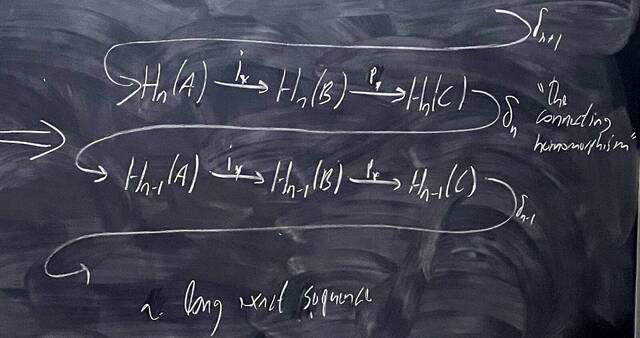 δₙ₊₁
Hₙ(A) →i⁎ Hₙ(B) →p⁎ Hₙ(C) δₙ "the
connecting
homomorphism"
⇒
Hₙ₋₁(A) →i⁎ Hₙ₋₁(B) →p⁎ Hₙ₋₁(C)
δₙ₋₁
a long exact sequence